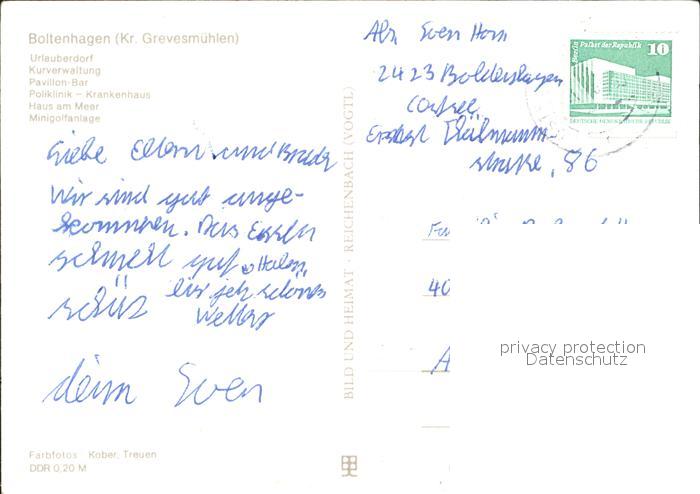 Boltenhagen (Kr. Grevesmühlen)
Urlauberdorf
Kurverwaltung
Pavillon-Bar
Poliklinik – Krankenhaus
Haus am Meer
Minigolfanlage
Liebe Eltern und Bruder
Wir sind gut ange-
kommen. Das Essen
schmeckt gut. Haben
bis jetz schönes
Wetter
schüs
dein Sven
Farbfotos Kober, Treuen
DDR 0,20 M
BILD UND HEIMAT · REICHENBACH (VOGTL)
Abs. Sven Horn
2423 Boldenhagen
Ostsee
Ernst Thälmann-
straße, 86
Berlin Palast der Republik
10
DEUTSCHE DEMOKRATISCHE REPUBLIK
Fa
40
A
privacy protection
Datenschutz